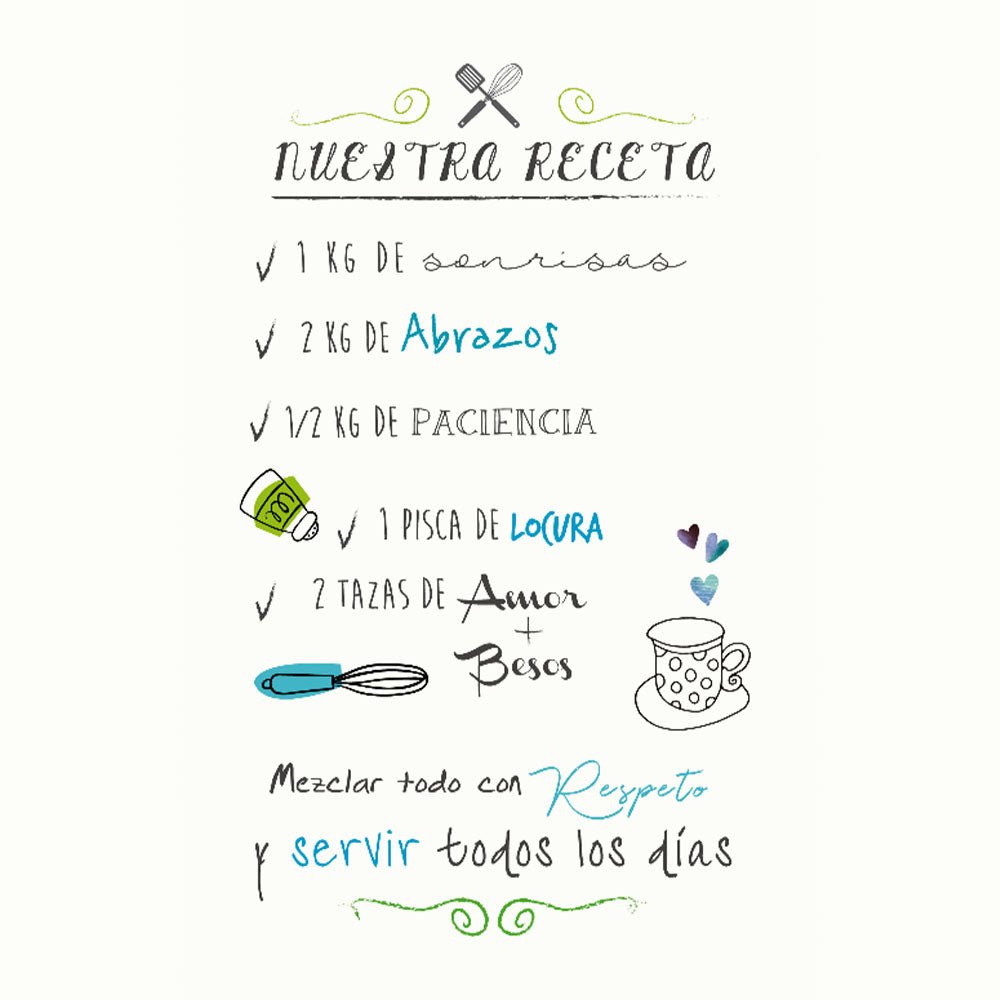 NUESTRA RECETA
1 KG DE sonrisas
2 KG DE Abrazos
1/2 KG DE PACIENCIA
1 PISCA DE LOCURA
2 TAZAS DE Amor
+
Besos
Mezclar todo con Respeto
y servir todos los días